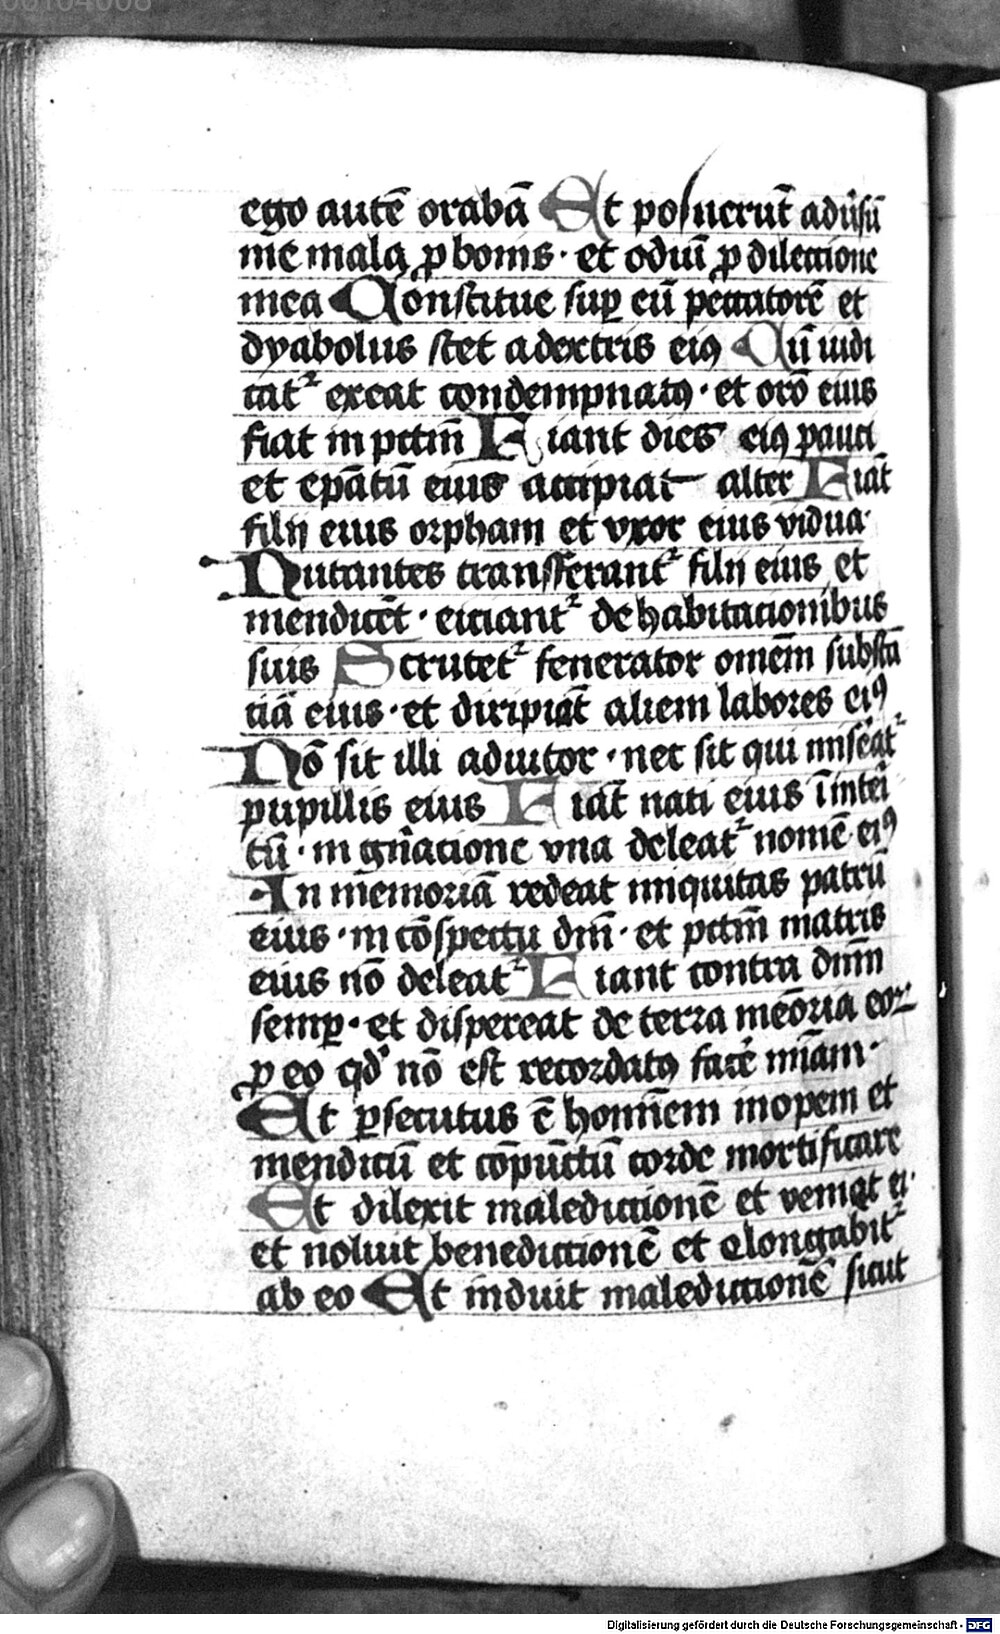 00104008
ego autē orabā Et posuerūt adūsū
me mala ꝓ bonis · et odiū ꝓ dilectione
mea Constitue suꝑ eū peccatorē et
dyabolus stet a dextris eiꝰ Cū iudi
cat᷑ exeat condempnatꝰ · et orō eius
fiat in pctm̄ Fiant dies eiꝰ pauci
et ep̄atū eius accipiat alter Fiāt
filii eius orphani et vxor eius vidua ·
Nutantes transferant᷑ filii eius et
mendicēt · eiciant᷑ de habitacionibus
suis Scrutet᷑ fenerator omēm substā
ciā eius · et diripiāt alieni labores eiꝰ
Nō sit illi adiutor · nec sit qui miseāt᷑
pupillis eius Fiāt nati eius ī interi
tū · in gn̄acione vna deleat᷑ nomē eiꝰ
In memoriā redeat iniquitas patrū
eius · in cōspectu dn̄i · et pctm̄ matris
eius nō deleat᷑ Fiant contra dnm̄
semꝑ · et dispereat de terra meōria eoꝝ
ꝓ eo qd' nō est recordatꝰ facē mīam ·
Et ꝑsecutus ē homīem inopem et
mendicū et cōpūctū corde mortificare
Et dilexit maledictionē et veniat ei ·
et noluit benedictionē et elongabit᷑
ab eo Et induit maledictionē sicut
Digitalisierung gefördert durch die Deutsche Forschungsgemeinschaft - DFG